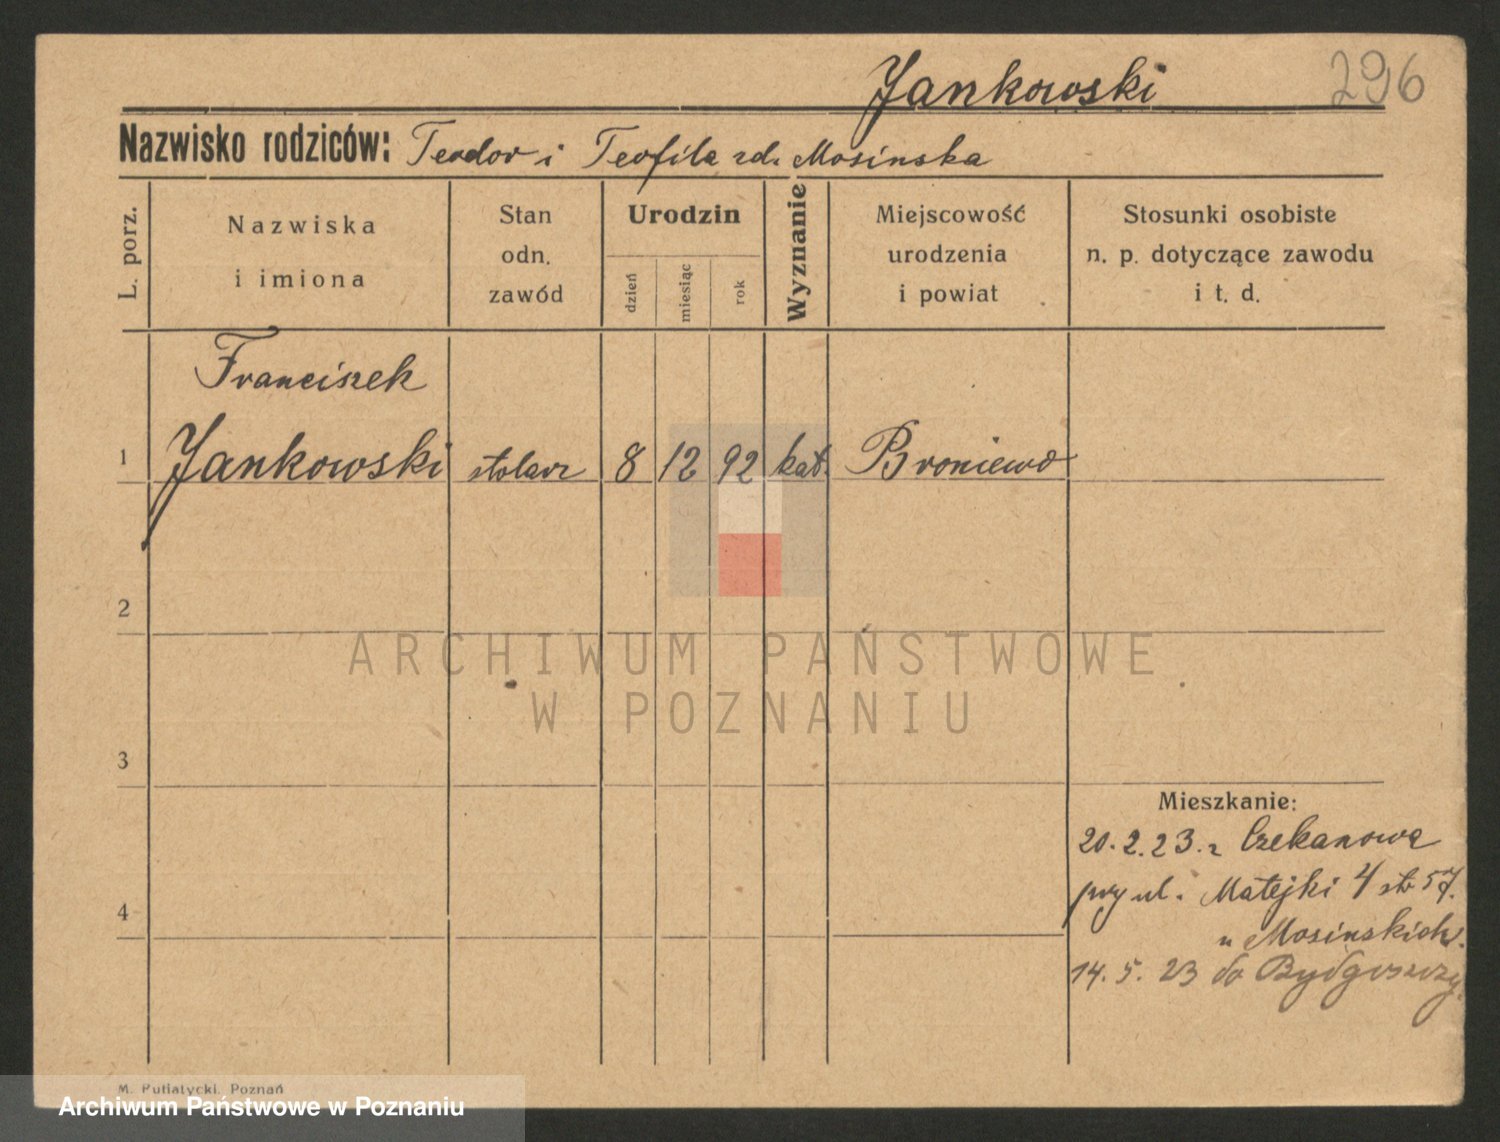 Jankowski 296
Nazwisko rodziców: Teodor i Teofila zd. Mosinska
L. porz.
Nazwiska
i imiona
Stan
odn.
zawód
Urodzin
dzień
miesiąc
rok
Wyznanie
Miejscowość
urodzenia
i powiat
Stosunki osobiste
n. p. dotyczące zawodu
i t. d.
Franciszek
1 Jankowski stolarz 8 12 92 kat. Broniewo
2
ARCHIWUM PAŃSTWOWE
W POZNANIU
3
Mieszkanie:
20.2.23. z Czekanowa
przy ul. Matejki 4 str 57.
u Mosinskich.
4
14.5.23 do Bydgoszczy.
M. Putiatycki, Poznań
Archiwum Państwowe w Poznaniu